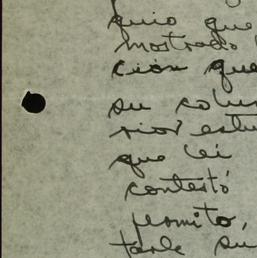 quio que
mostrado
ción que
su colu
rior estu
que leí
contestó
permito,
tarle su